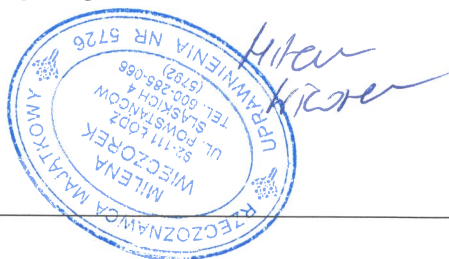 RZECZOZNAWCA MAJĄTKOWY
UPRAWNIENIA NR 5726
MILENA
WIECZOREK
92-111 ŁÓDŹ
UL. POWSTAŃCÓW
ŚLĄSKICH 4
TEL. 600-285-066
(5792)
Milena
Wieczorek